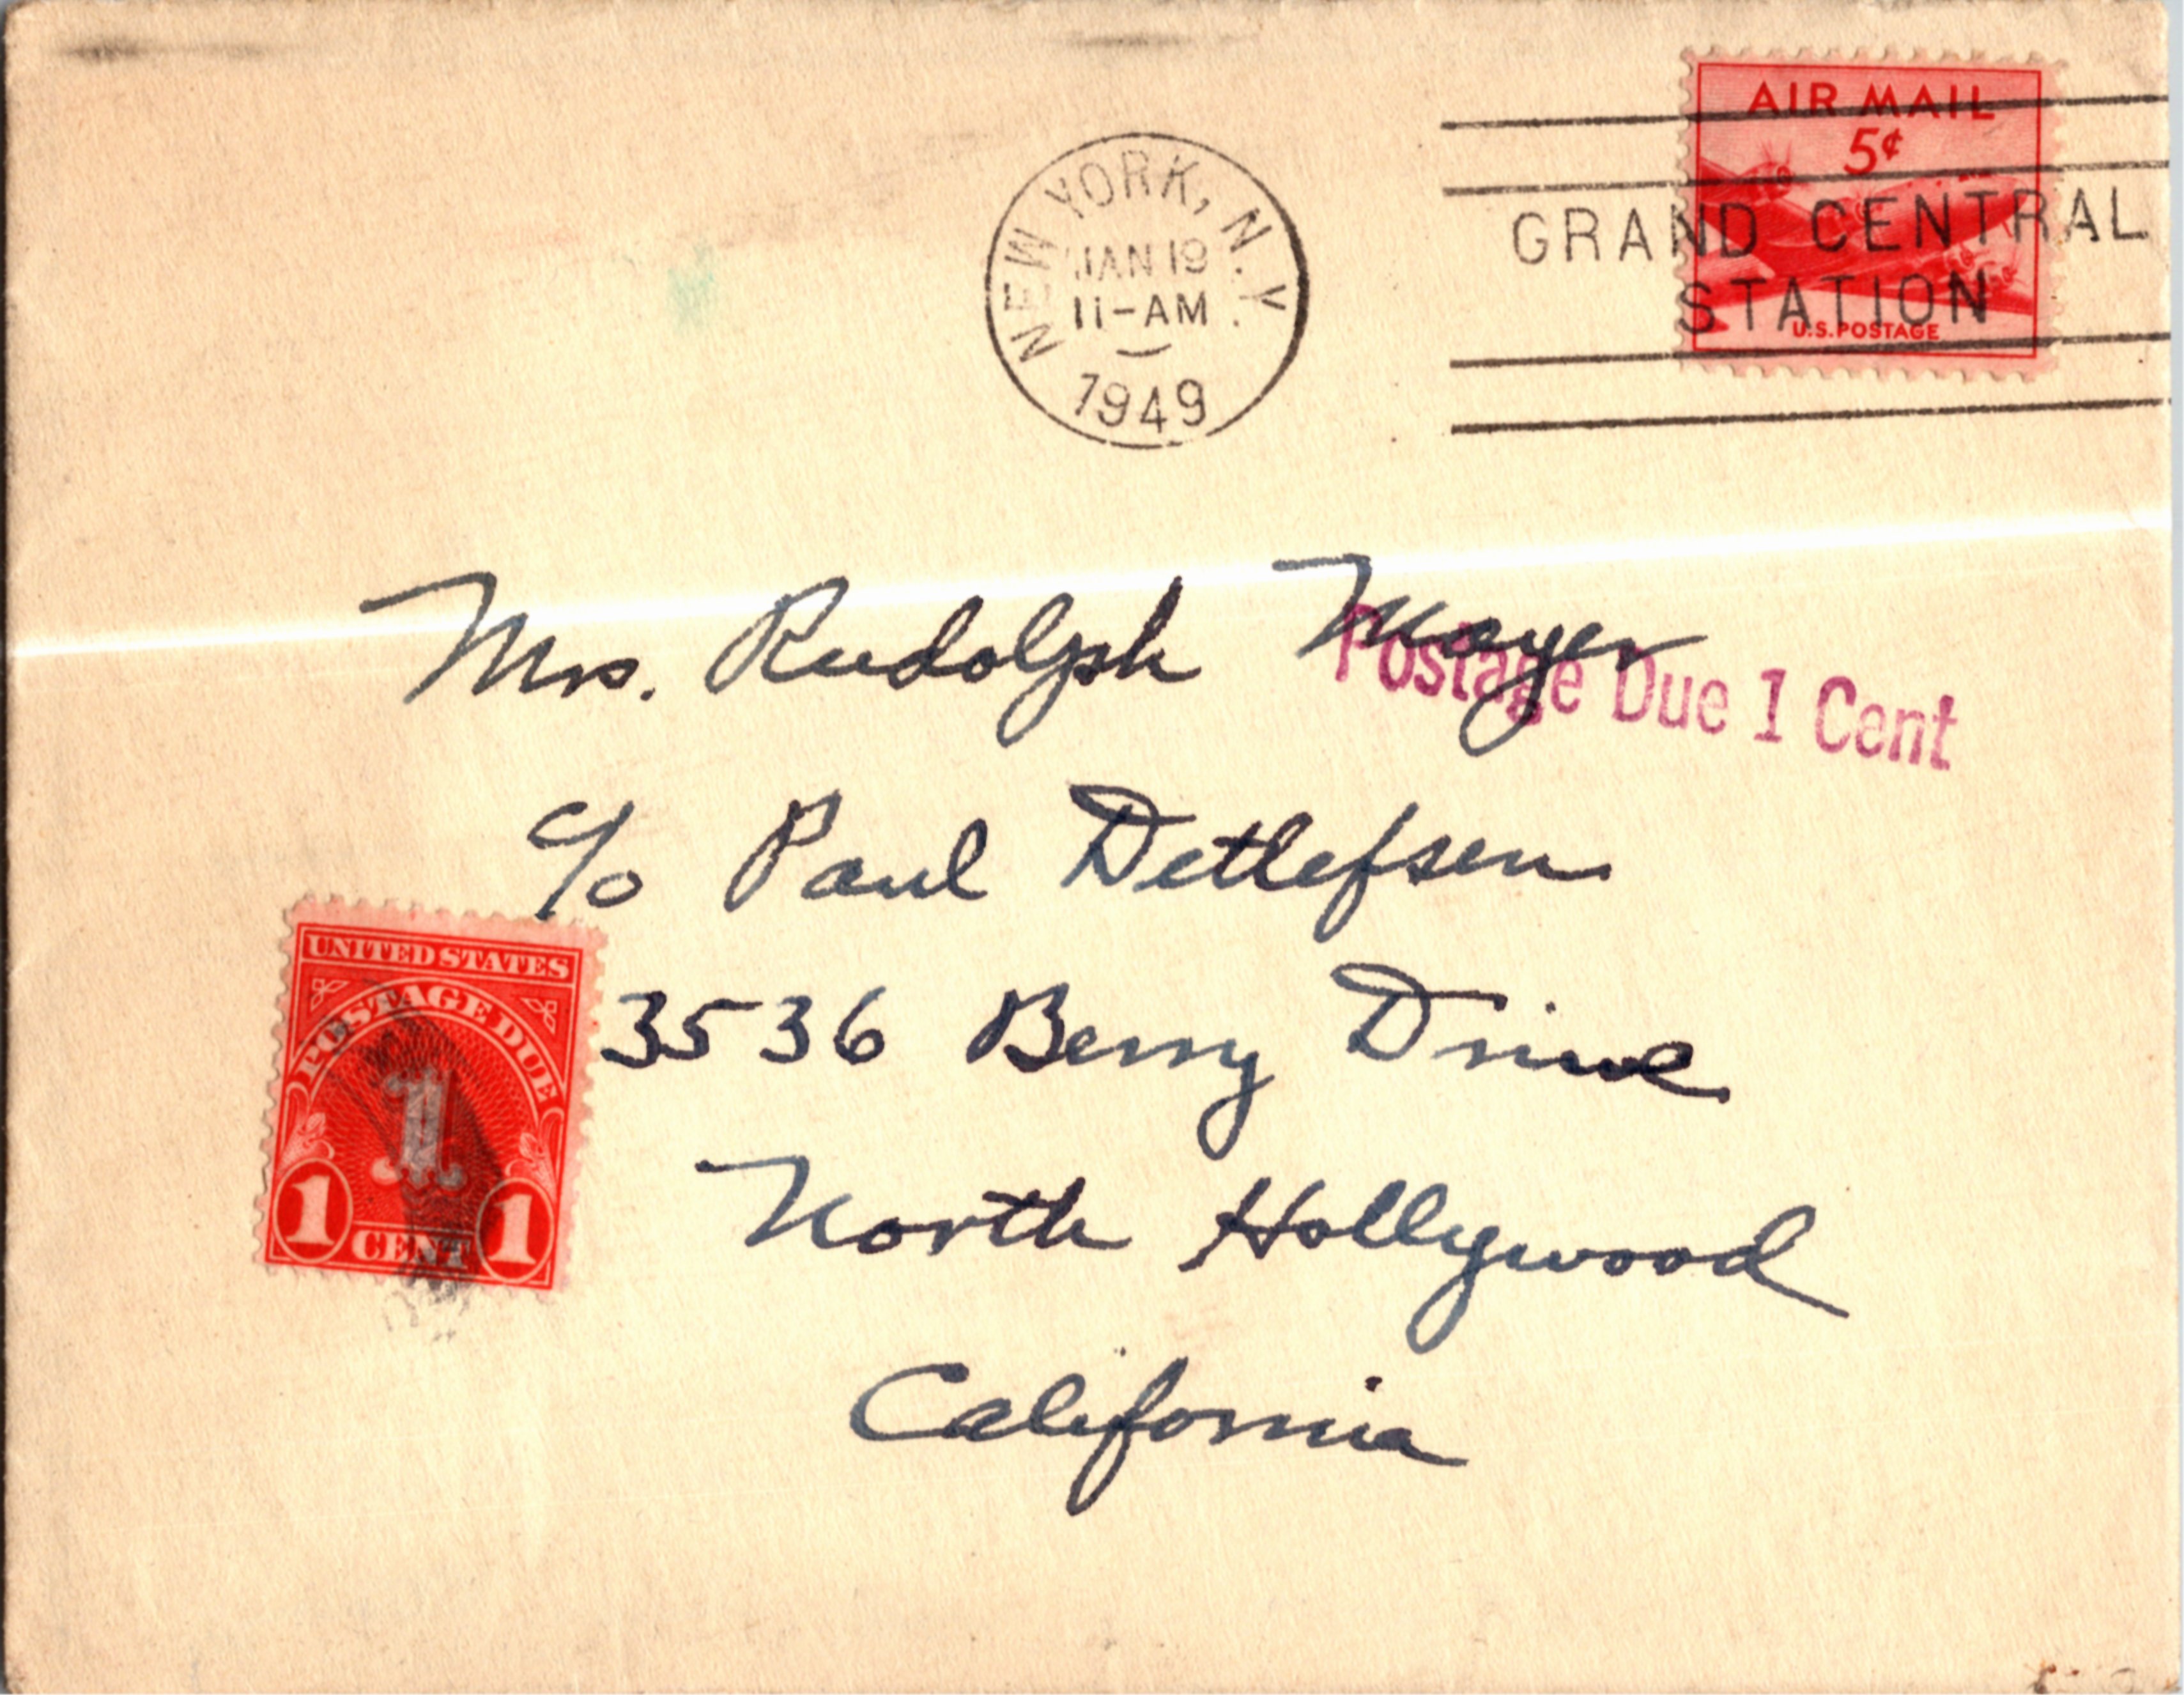 AIR MAIL
5¢
U.S. POSTAGE
NEW YORK, N.Y.
JAN 19
11-AM
1949
GRAND CENTRAL
STATION
Mrs. Rudolph Mayer
Postage Due 1 Cent
c/o Paul Detlefsen
3536 Berry Drive
North Hollywood
California
UNITED STATES
POSTAGE DUE
1
1 CENT 1